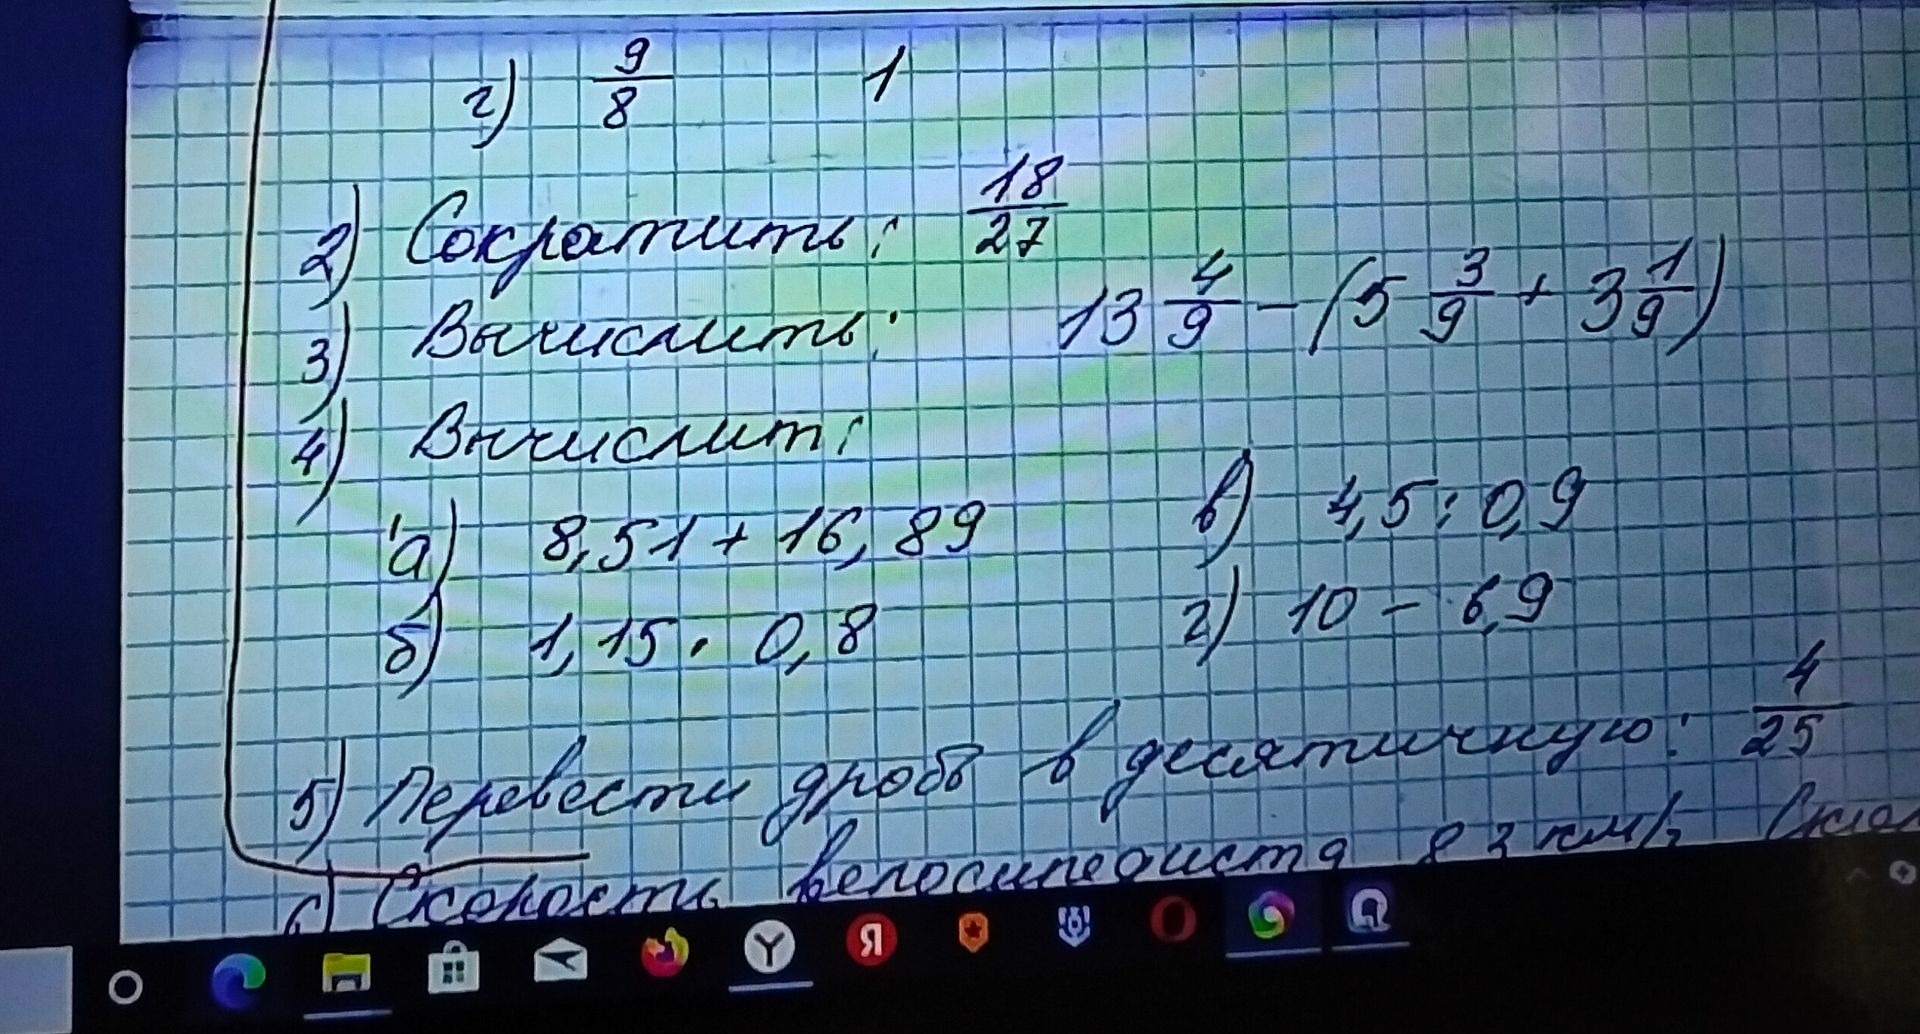 г) 9/8 1
2) Сократить: 18/27
3) Вычислить: 13 4/9 - (5 3/9 + 3 1/9)
4) Вычислит:
а) 8,51 + 16,89 в) 4,5 : 0,9
б) 1,15 · 0,8 г) 10 - 6,9
5) Перевести дробь в десятичную: 4/25
6) Скорость велосипедиста 8 3 км/
Я